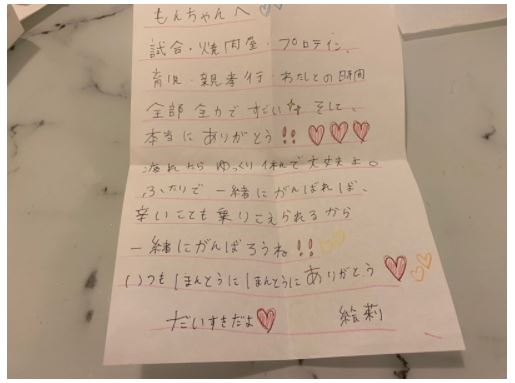 もんちゃんへ
試合・焼肉屋・プロテイン、
育児・親孝行・わたしとの時間
全部全力ですごい そして、
本当にありがとう!!
疲れたらゆっくり休んで大丈夫よ。
ふたりで一緒にがんばれば、
辛いことも乗りこえられるから
一緒にがんばろうね!!
いつもほんとうにほんとうにありがとう
だいすきだよ 絵莉